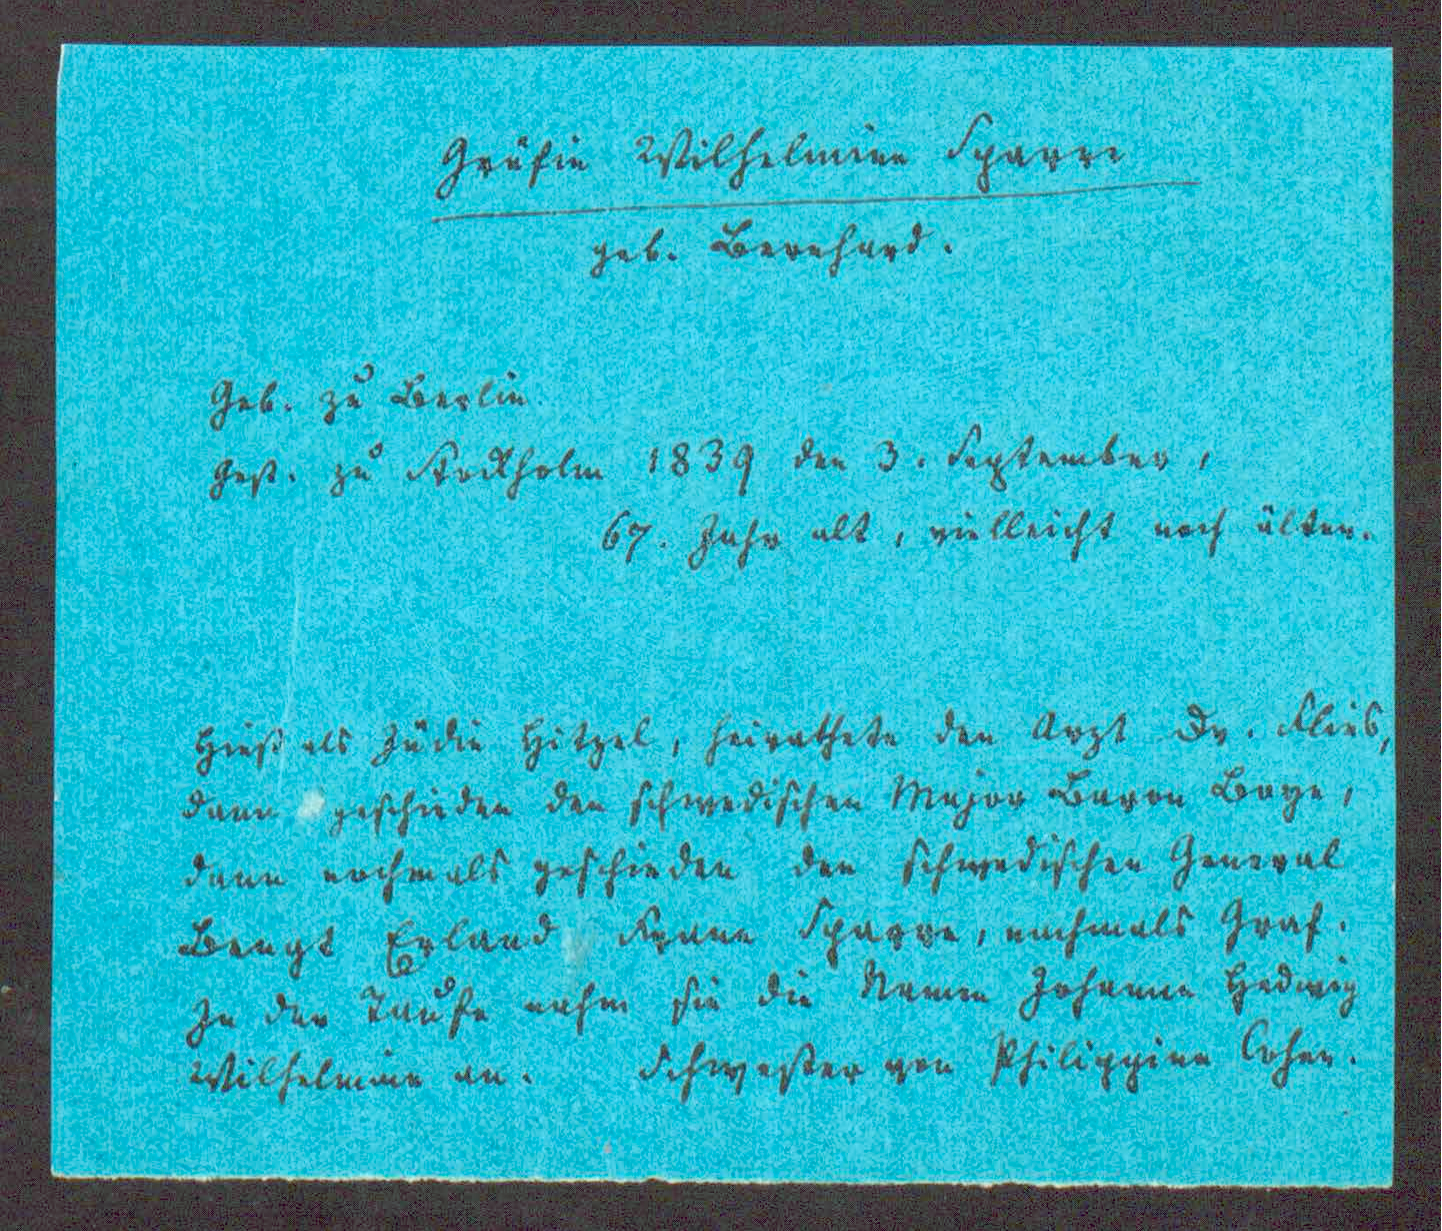 Gräfin Wilhelmine Sparre
geb. Bernhard.
Geb. zu Berlin.
Gest. zu Stockholm 1839 den 3. September,
67. Jahr alt, vielleicht noch älter.
Hieß als Jüdin Hitzel, heirathete den Arzt Dr. Flies,
dann geschieden den schwedischen Major Baron Boye,
dann nochmals geschieden den schwedischen General
Bengt Erland Franc Sparre, nachmals Graf.
In der Taufe nahm sie die Namen Johanna Hedwig
Wilhelmine an. Schwester von Philippine Cohen.